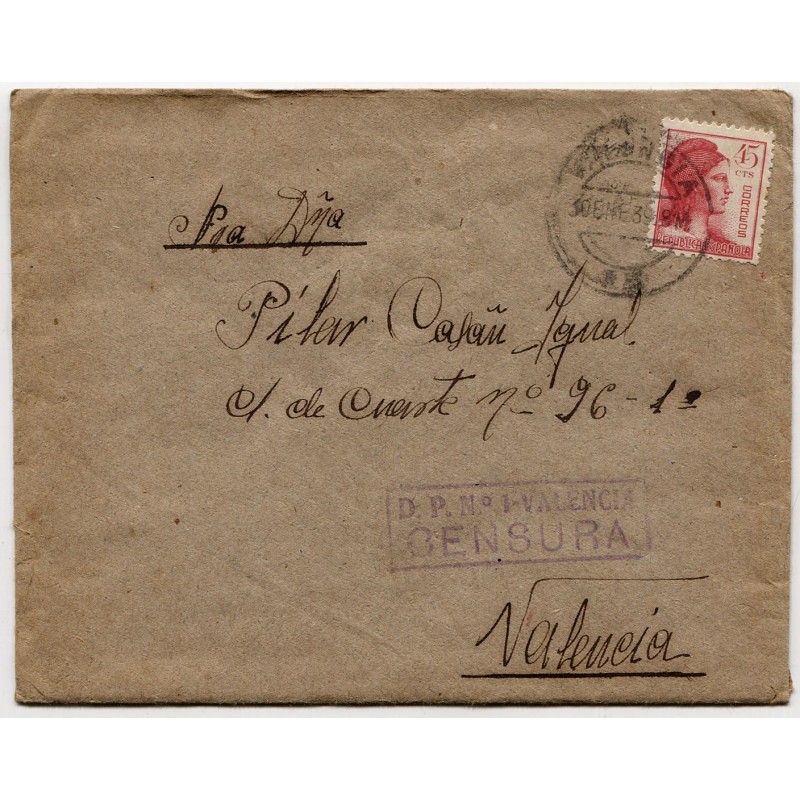 VALENCIA
30 ENE 39 8M
45
CTS
CORREOS
REPUBLICA ESPAÑOLA
Dña
Pilar Casañ Igual
C. de Cuarte nº 96-1º
D. P. Nº 1-VALENCIA
CENSURA
Valencia